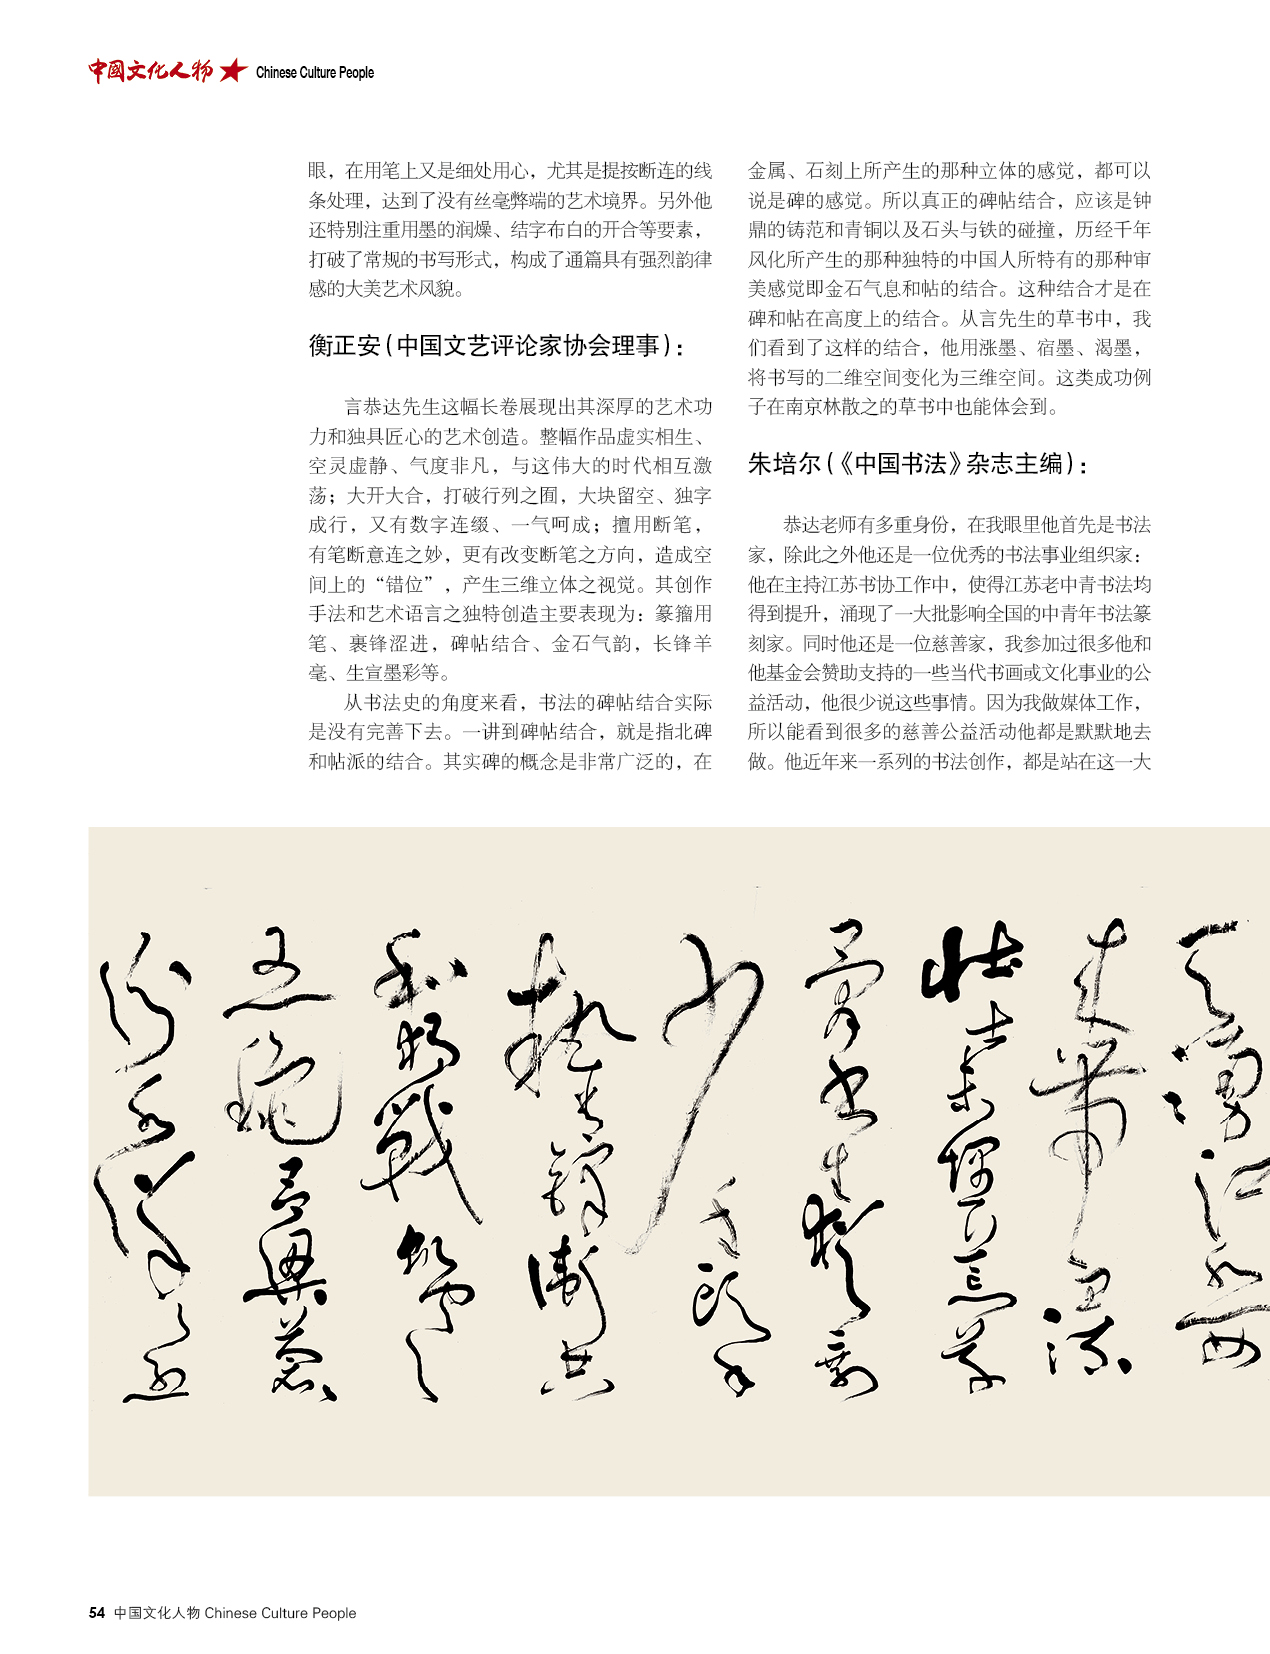 中國文化人物 Chinese Culture People
眼，在用笔上又是细处用心，尤其是提按断连的线
条处理，达到了没有丝毫弊端的艺术境界。另外他
还特别注重用墨的润燥、结字布白的开合等要素，
打破了常规的书写形式，构成了通篇具有强烈韵律
感的大美艺术风貌。
衡正安（中国文艺评论家协会理事）：
言恭达先生这幅长卷展现出其深厚的艺术功
力和独具匠心的艺术创造。整幅作品虚实相生、
空灵虚静、气度非凡，与这伟大的时代相互激
荡；大开大合，打破行列之囿，大块留空、独字
成行，又有数字连缀、一气呵成；擅用断笔，
有笔断意连之妙，更有改变断笔之方向，造成空
间上的“错位”，产生三维立体之视觉。其创作
手法和艺术语言之独特创造主要表现为：篆籀用
笔、裹锋涩进，碑帖结合、金石气韵，长锋羊
毫、生宣墨彩等。
从书法史的角度来看，书法的碑帖结合实际
是没有完善下去。一讲到碑帖结合，就是指北碑
和帖派的结合。其实碑的概念是非常广泛的，在
金属、石刻上所产生的那种立体的感觉，都可以
说是碑的感觉。所以真正的碑帖结合，应该是钟
鼎的铸范和青铜以及石头与铁的碰撞，历经千年
风化所产生的那种独特的中国人所特有的那种审
美感觉即金石气息和帖的结合。这种结合才是在
碑和帖在高度上的结合。从言先生的草书中，我
们看到了这样的结合，他用涨墨、宿墨、渴墨，
将书写的二维空间变化为三维空间。这类成功例
子在南京林散之的草书中也能体会到。
朱培尔（《中国书法》杂志主编）：
恭达老师有多重身份，在我眼里他首先是书法
家，除此之外他还是一位优秀的书法事业组织家：
他在主持江苏书协工作中，使得江苏老中青书法均
得到提升，涌现了一大批影响全国的中青年书法篆
刻家。同时他还是一位慈善家，我参加过很多他和
他基金会赞助支持的一些当代书画或文化事业的公
益活动，他很少说这些事情。因为我做媒体工作，
所以能看到很多的慈善公益活动他都是默默地去
做。他近年来一系列的书法创作，都是站在这一大
54 中国文化人物 Chinese Culture People